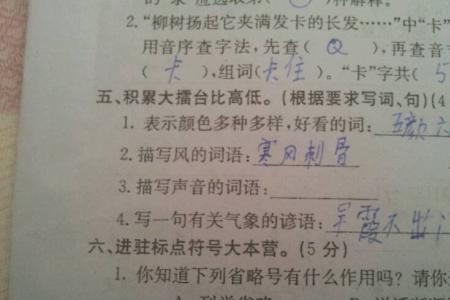 的"素"应选取第(　)种解释。
2."柳树扬起它夹满发卡的长发……"中"卡"
用音序查字法,先查( Q ),再查音
( 卡 ),组词(卡住)。"卡"字共( 5
五、积累大擂台比高低。(根据要求写词、句)(4
1. 表示颜色多种多样,好看的词: 五颜六
2. 描写风的词语: 寒风刺骨
3. 描写声音的词语:
4. 写一句有关气象的谚语: 早霞不出门
六、进驻标点符号大本营。(5 分)
1. 你知道下列省略号有什么作用吗? 请你